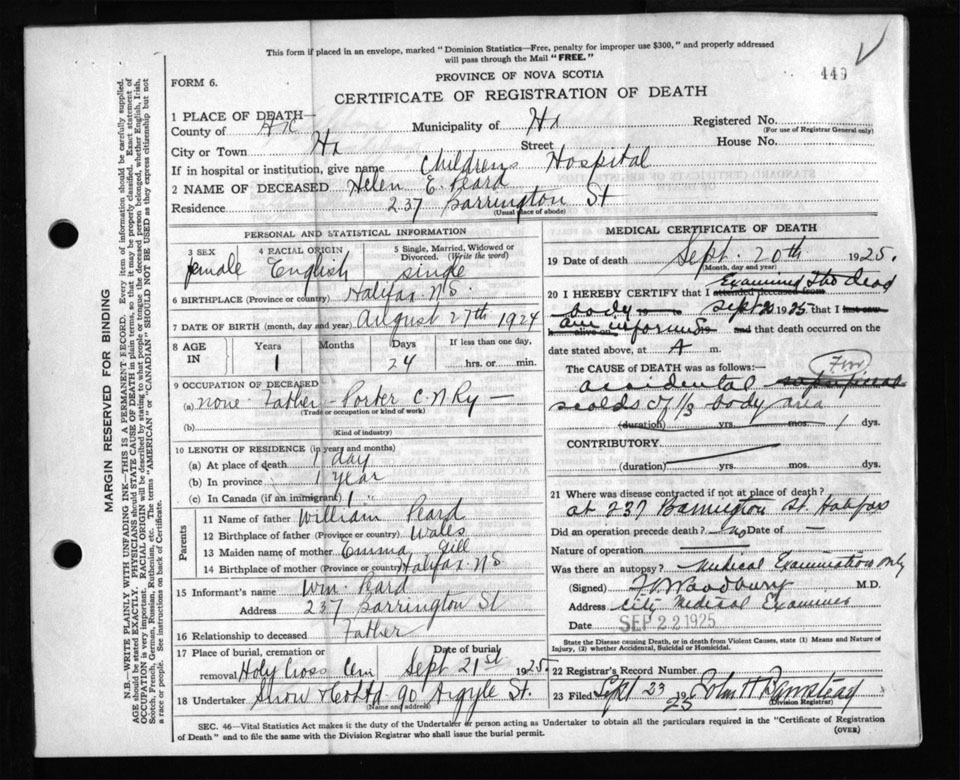 This form if placed in an envelope, marked "Dominion Statistics—Free, penalty for improper use $300," and properly addressed
will pass through the Mail "FREE."
449
PROVINCE OF NOVA SCOTIA
FORM 6.
CERTIFICATE OF REGISTRATION OF DEATH
1 PLACE OF DEATH—
County of Hx Municipality of Hx Registered No.
(For use of Registrar General only)
City or Town Hx Street House No.
If in hospital or institution, give name Childrens Hospital
2 NAME OF DECEASED Helen E. Peard
Residence 237 Barrington St
(Usual place of abode)
PERSONAL AND STATISTICAL INFORMATION
3 SEX 4 RACIAL ORIGIN 5 Single, Married, Widowed or Divorced. (Write the word)
female English single
6 BIRTHPLACE (Province or country) Halifax N.S.
7 DATE OF BIRTH (month, day and year) August 27th 1924
8 AGE IN Years Months Days If less than one day,
1 24 hrs. or min.
9 OCCUPATION OF DECEASED
(a) none Father - Porter C.N Ry —
(Trade or occupation or kind of work)
(b)
(Kind of industry)
10 LENGTH OF RESIDENCE (in years and months)
(a) At place of death 1 day
(b) In province 1 year
(c) In Canada (if an immigrant) 1 "
Parents
11 Name of father William Peard
12 Birthplace of father (Province or country) Wales
13 Maiden name of mother Emma Gill
14 Birthplace of mother (Province or country) Halifax N S
15 Informant's name Wm. Peard
Address 237 Barrington St
16 Relationship to deceased Father
17 Place of burial, cremation or removal Holy Cross Cem Date of burial Sept 21st 1925
18 Undertaker Snow & Co Ltd 90 Argyle St.
(Name and address)
MEDICAL CERTIFICATE OF DEATH
19 Date of death Sept. 20th 1925.
(Month, day and year)
20 I HEREBY CERTIFY that I attended deceased from Examining the dead
body Sept 1925 that I last saw
h alive on am informed and that death occurred on the
date stated above, at A m.
The CAUSE OF DEATH was as follows:
accidental superficial
scalds of 1/3 body area
(duration) yrs. mos. 1 dys.
CONTRIBUTORY
(duration) yrs. mos. dys.
21 Where was disease contracted if not at place of death?
at 237 Barrington St. Halifax
Did an operation precede death? no Date of —
Nature of operation
Was there an autopsy? Medical Examination only
(Signed) Woodbury M.D.
Address City Medical Examiner
Date SEP 22 1925
State the Disease causing Death, or in death from Violent Causes, state (1) Means and Nature of
Injury, (2) whether Accidental, Suicidal or Homicidal.
22 Registrar's Record Number
23 Filed Sept 23 1925 John H Barnstead
(Division Registrar)
SEC. 46—Vital Statistics Act makes it the duty of the Undertaker or person acting as Undertaker to obtain all the particulars required in the "Certificate of Registration
of Death" and to file the same with the Division Registrar who shall issue the burial permit.
(OVER)
MARGIN RESERVED FOR BINDING
N.B.—WRITE PLAINLY WITH UNFADING INK—THIS IS A PERMANENT RECORD. Every item of information should be carefully supplied.
AGE should be stated EXACTLY. PHYSICIANS should STATE CAUSE OF DEATH in plain terms, so that it may be properly classified. Exact statement of
OCCUPATION is very important. RACIAL ORIGIN will be described by stating to what people or tongue the deceased person belonged, whether English, Irish,
Scotch, French, German, Russian, Ruthenian, etc. The terms "AMERICAN" or "CANADIAN" SHOULD NOT BE USED as they express citizenship but not
a race or people. See instructions on back of Certificate.